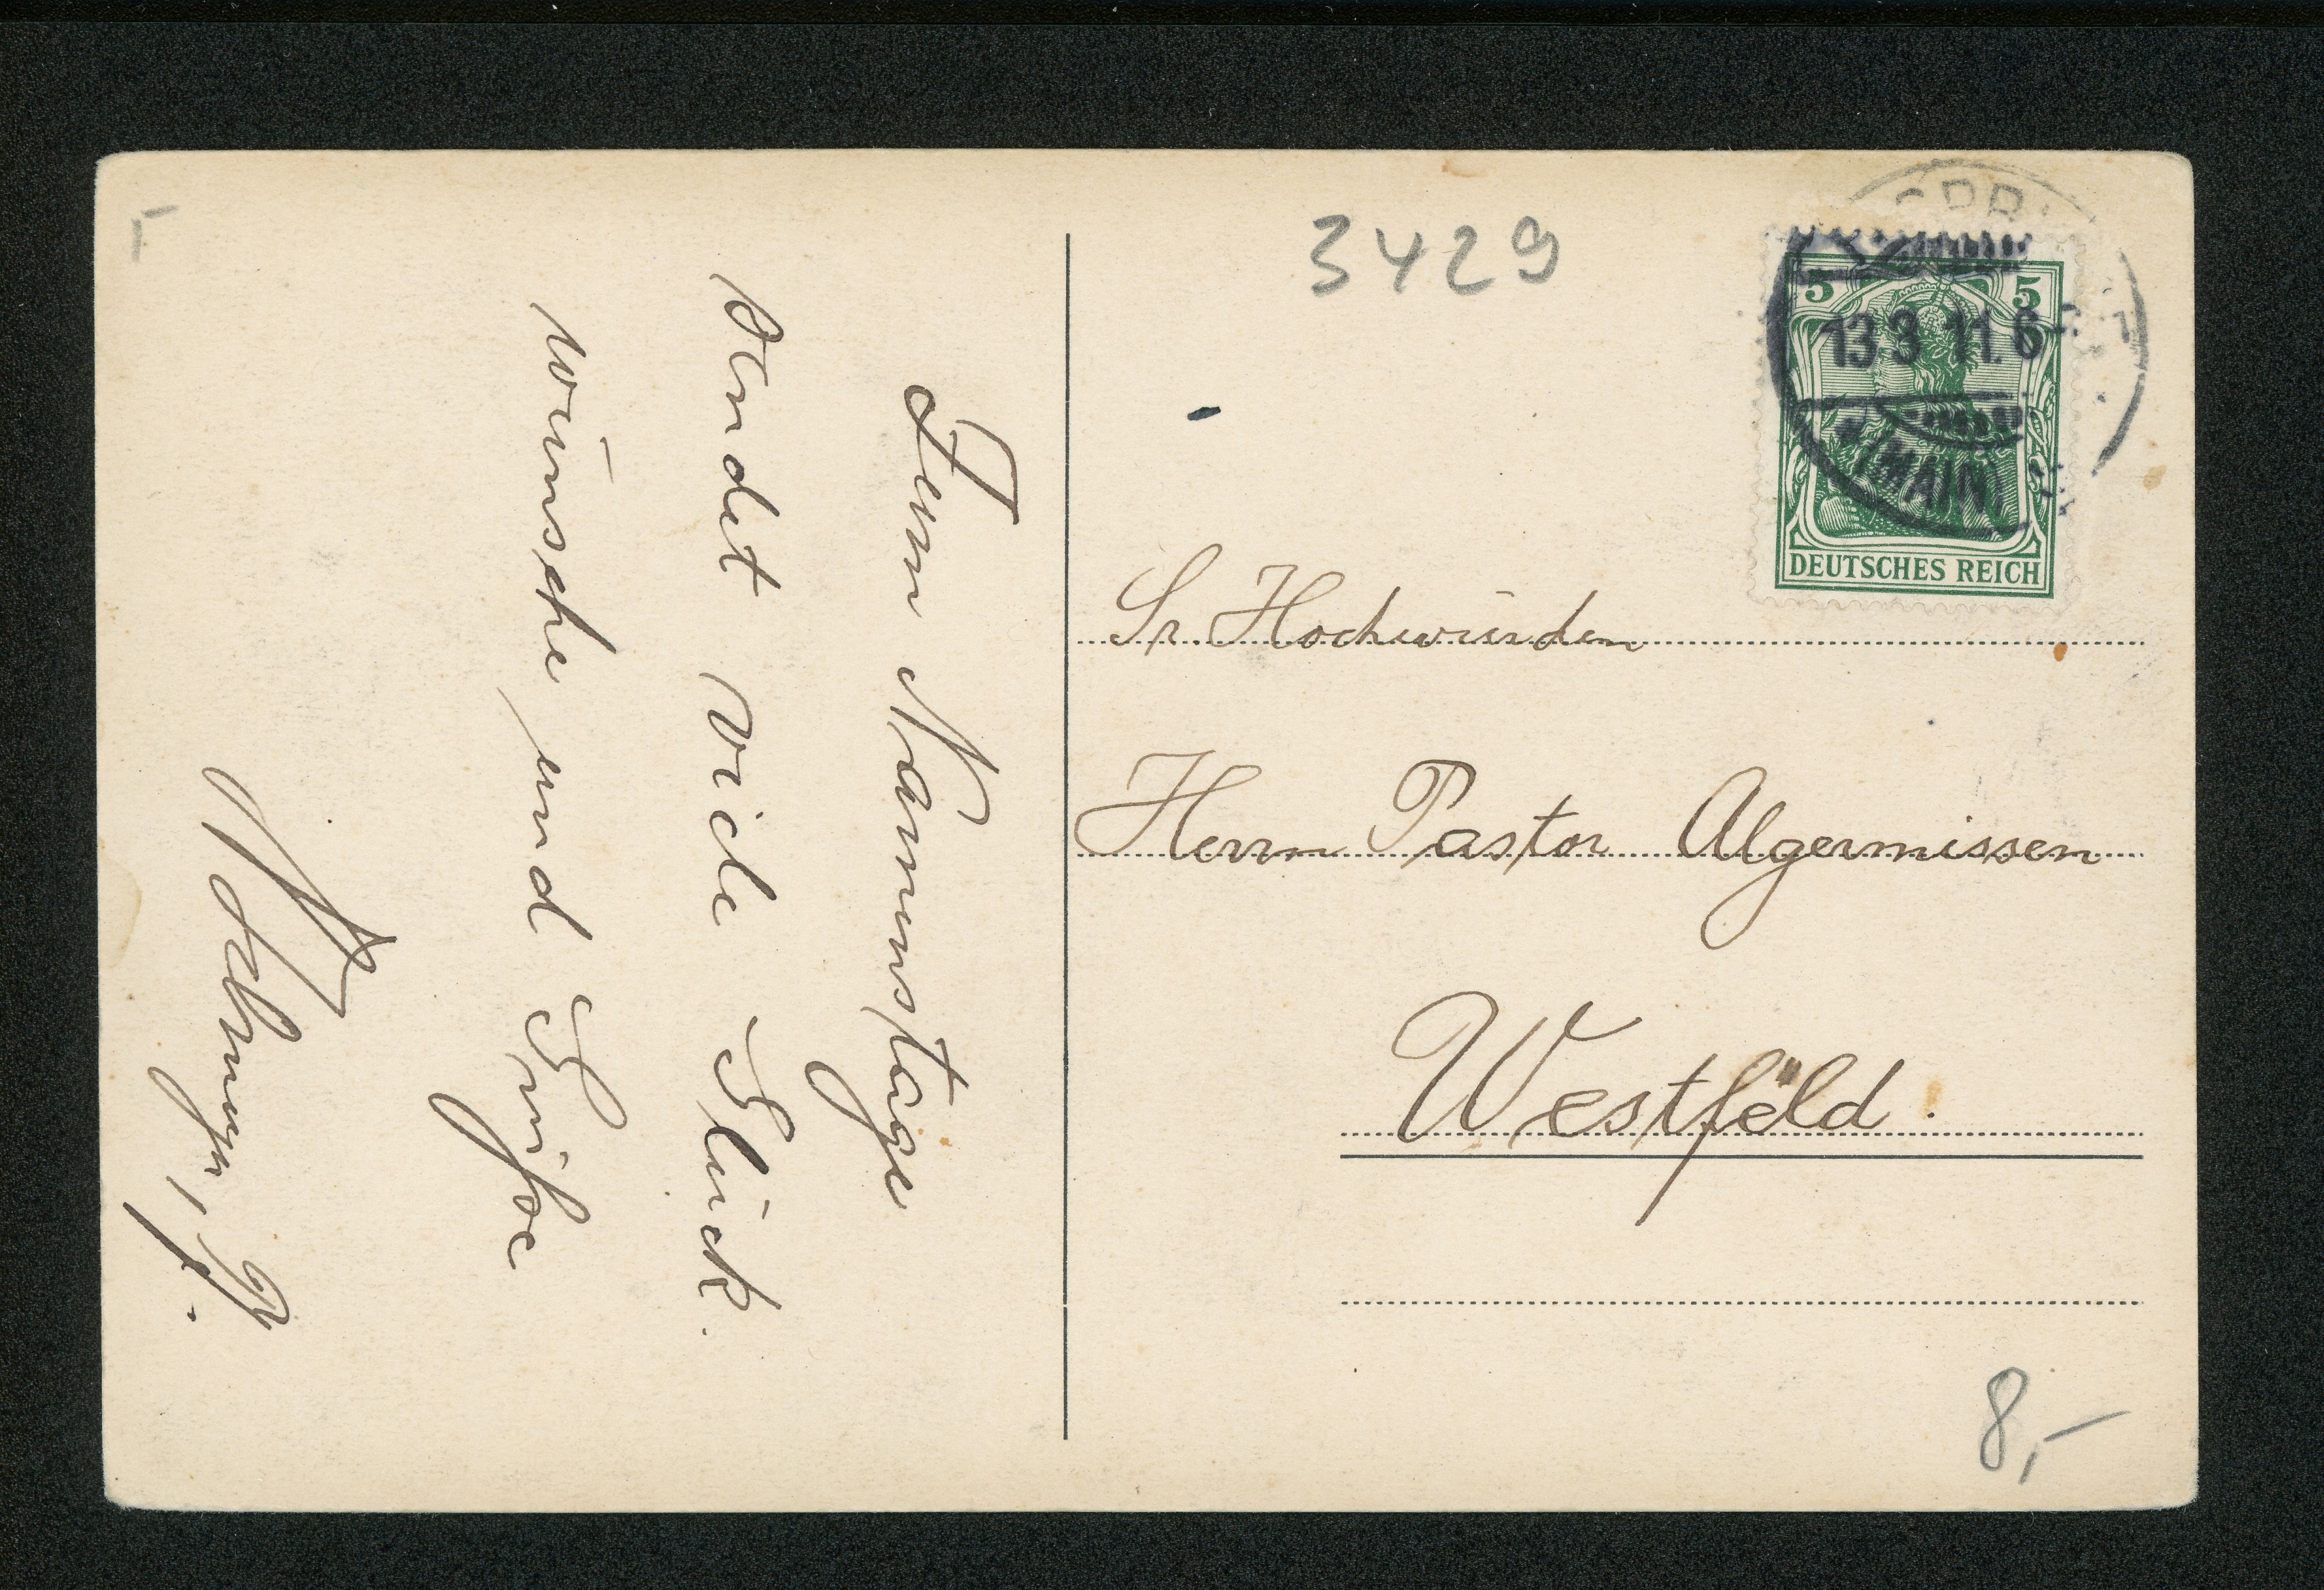 Zum Namenstage
sendet viele Glück
wünsche und Grüße
3429
5 5
13 3 11. 6
(MAIN)
DEUTSCHES REICH
Sr. Hochwürden
Herrn Pastor Algermissen
Westfeld.
8,-